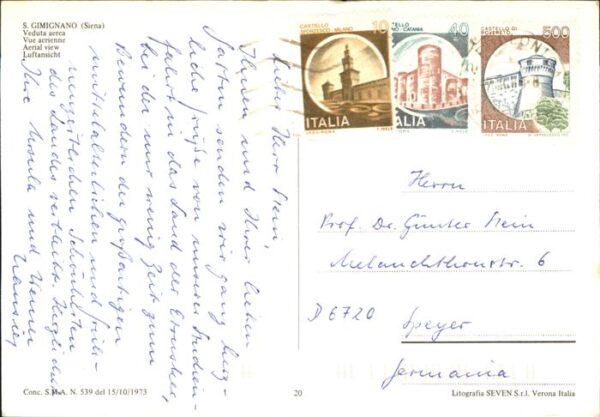 S. GIMIGNANO (Siena)
Veduta aerea
Vue aerienne
Aerial view
Luftansicht
CASTELLO SFORZESCO MILANO 10
ITALIA
CATANIA 40
ITALIA
CASTELLO DI ROVERETO 500
ITALIA
Lieber Herr Stein,
Ihnen und Ihrer lieben
Gattin senden wir ganz herz-
liche Grüße von unserer Studien-
fahrt in das Land der Etrusker,
bei der nur wenig Zeit zum
Bewundern der großartigen
mittelalterlichen und früh-
Schönheiten
des Landes verbleibt. Herzlichst
Ihre Ursula und Werner
Herrn
Prof. Dr. Günter Stein
Melanchthonstr. 6
D 6720
Speyer
Germania
Conc. S.M.A. N. 539 del 15/10/1973
20
Litografia SEVEN S.r.l. Verona Italia